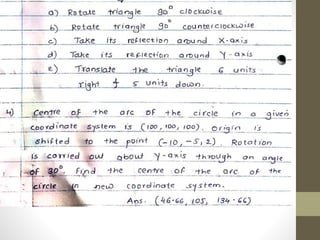 a) Rotate triangle 90° clockwise
b) Rotate triangle 90° counterclockwise
c) Take its reflection around X-axis
d) Take its reflection around Y-axis
e) Translate the triangle 6 units
right & 5 units down.
4) Centre of the arc of the circle in a given
coordinate system is (100, 100, 100). Origin is
shifted to the point (-10, -5, 2). Rotation
is carried out about Y-axis through an angle
of 30°. Find the centre of the arc of the
circle in new coordinate system.
Ans. (46.66, 105, 134.66)